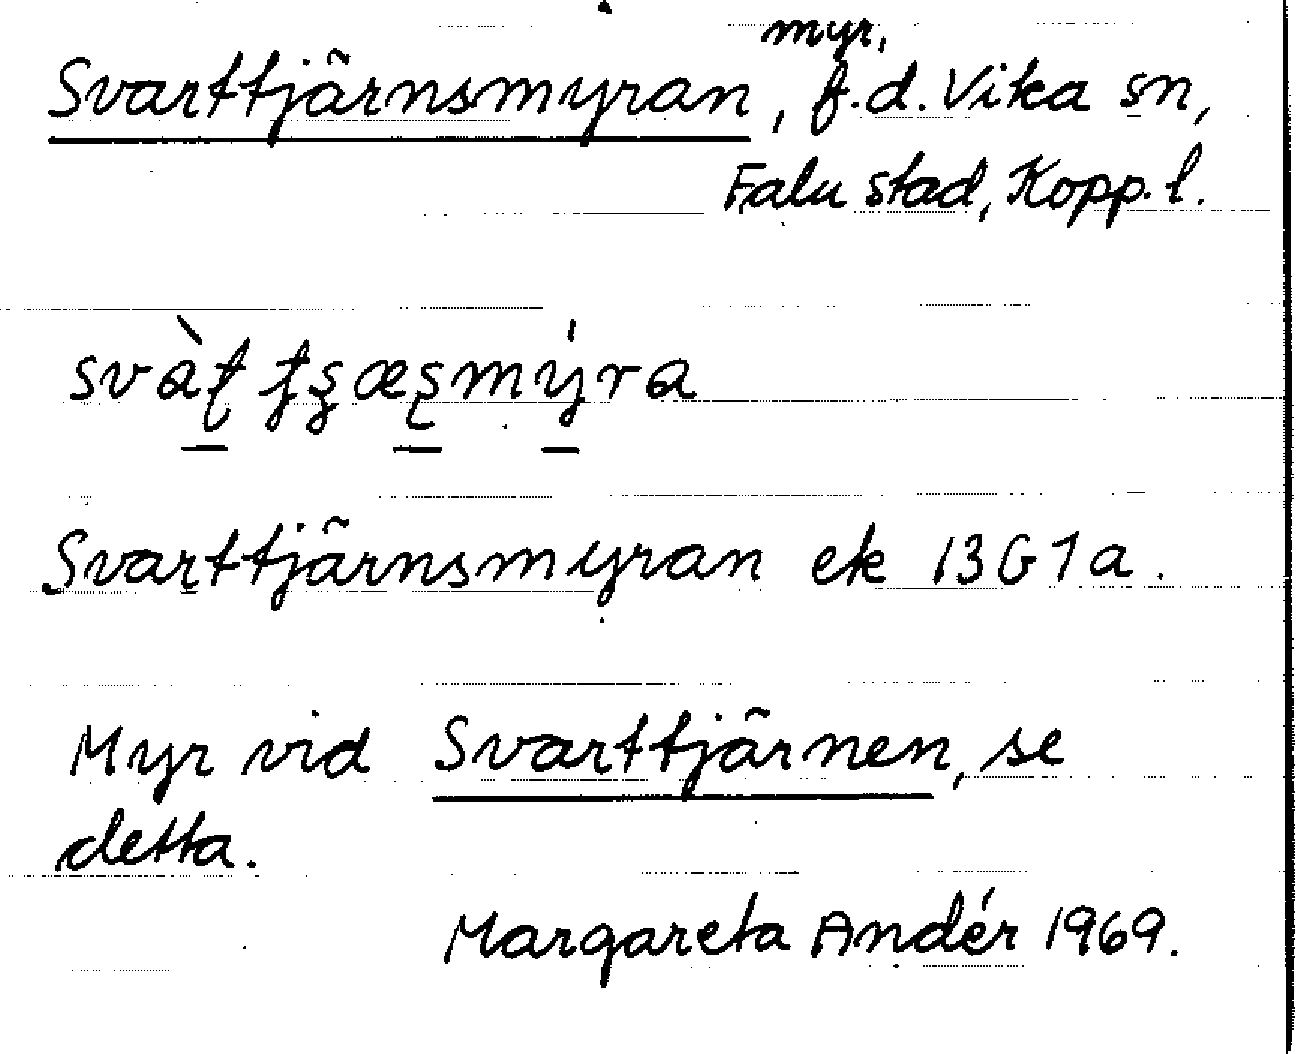 Svarttjärnsmyran, myr, f.d. Vika sn,
Falu stad, Kopp. l.
Svarttjärnsmyran ek 13G1a.
Myr vid Svarttjärnen, se
detta.
Margareta Andér 1969.